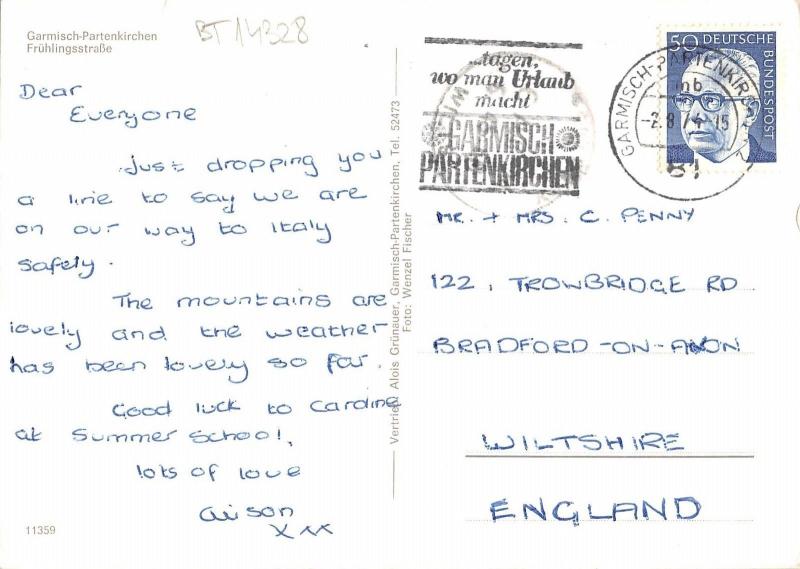 Garmisch-Partenkirchen
Frühlingsstraße
BT14328
Dear
Everyone
Just dropping you
a line to say we are
on our way to Italy
safely.
The mountains are
lovely and the weather
has been lovely so far.
Good luck to Caroline
at Summer School,
lots of love
Alison
xxx
11359
Vertrieb: Alois Grünauer, Garmisch-Partenkirchen, Tel. 52473
Foto: Wenzel Fischer
...tagen,
wo man Urlaub
macht
GARMISCH
PARTENKIRCHEN
50 DEUTSCHE
BUNDESPOST
GARMISCH-PARTENKIRCHEN 1
mb
-2.8.74-15
81
MR. + MRS. C. PENNY
122, TROWBRIDGE RD
BRADFORD-ON-AVON
WILTSHIRE
ENGLAND